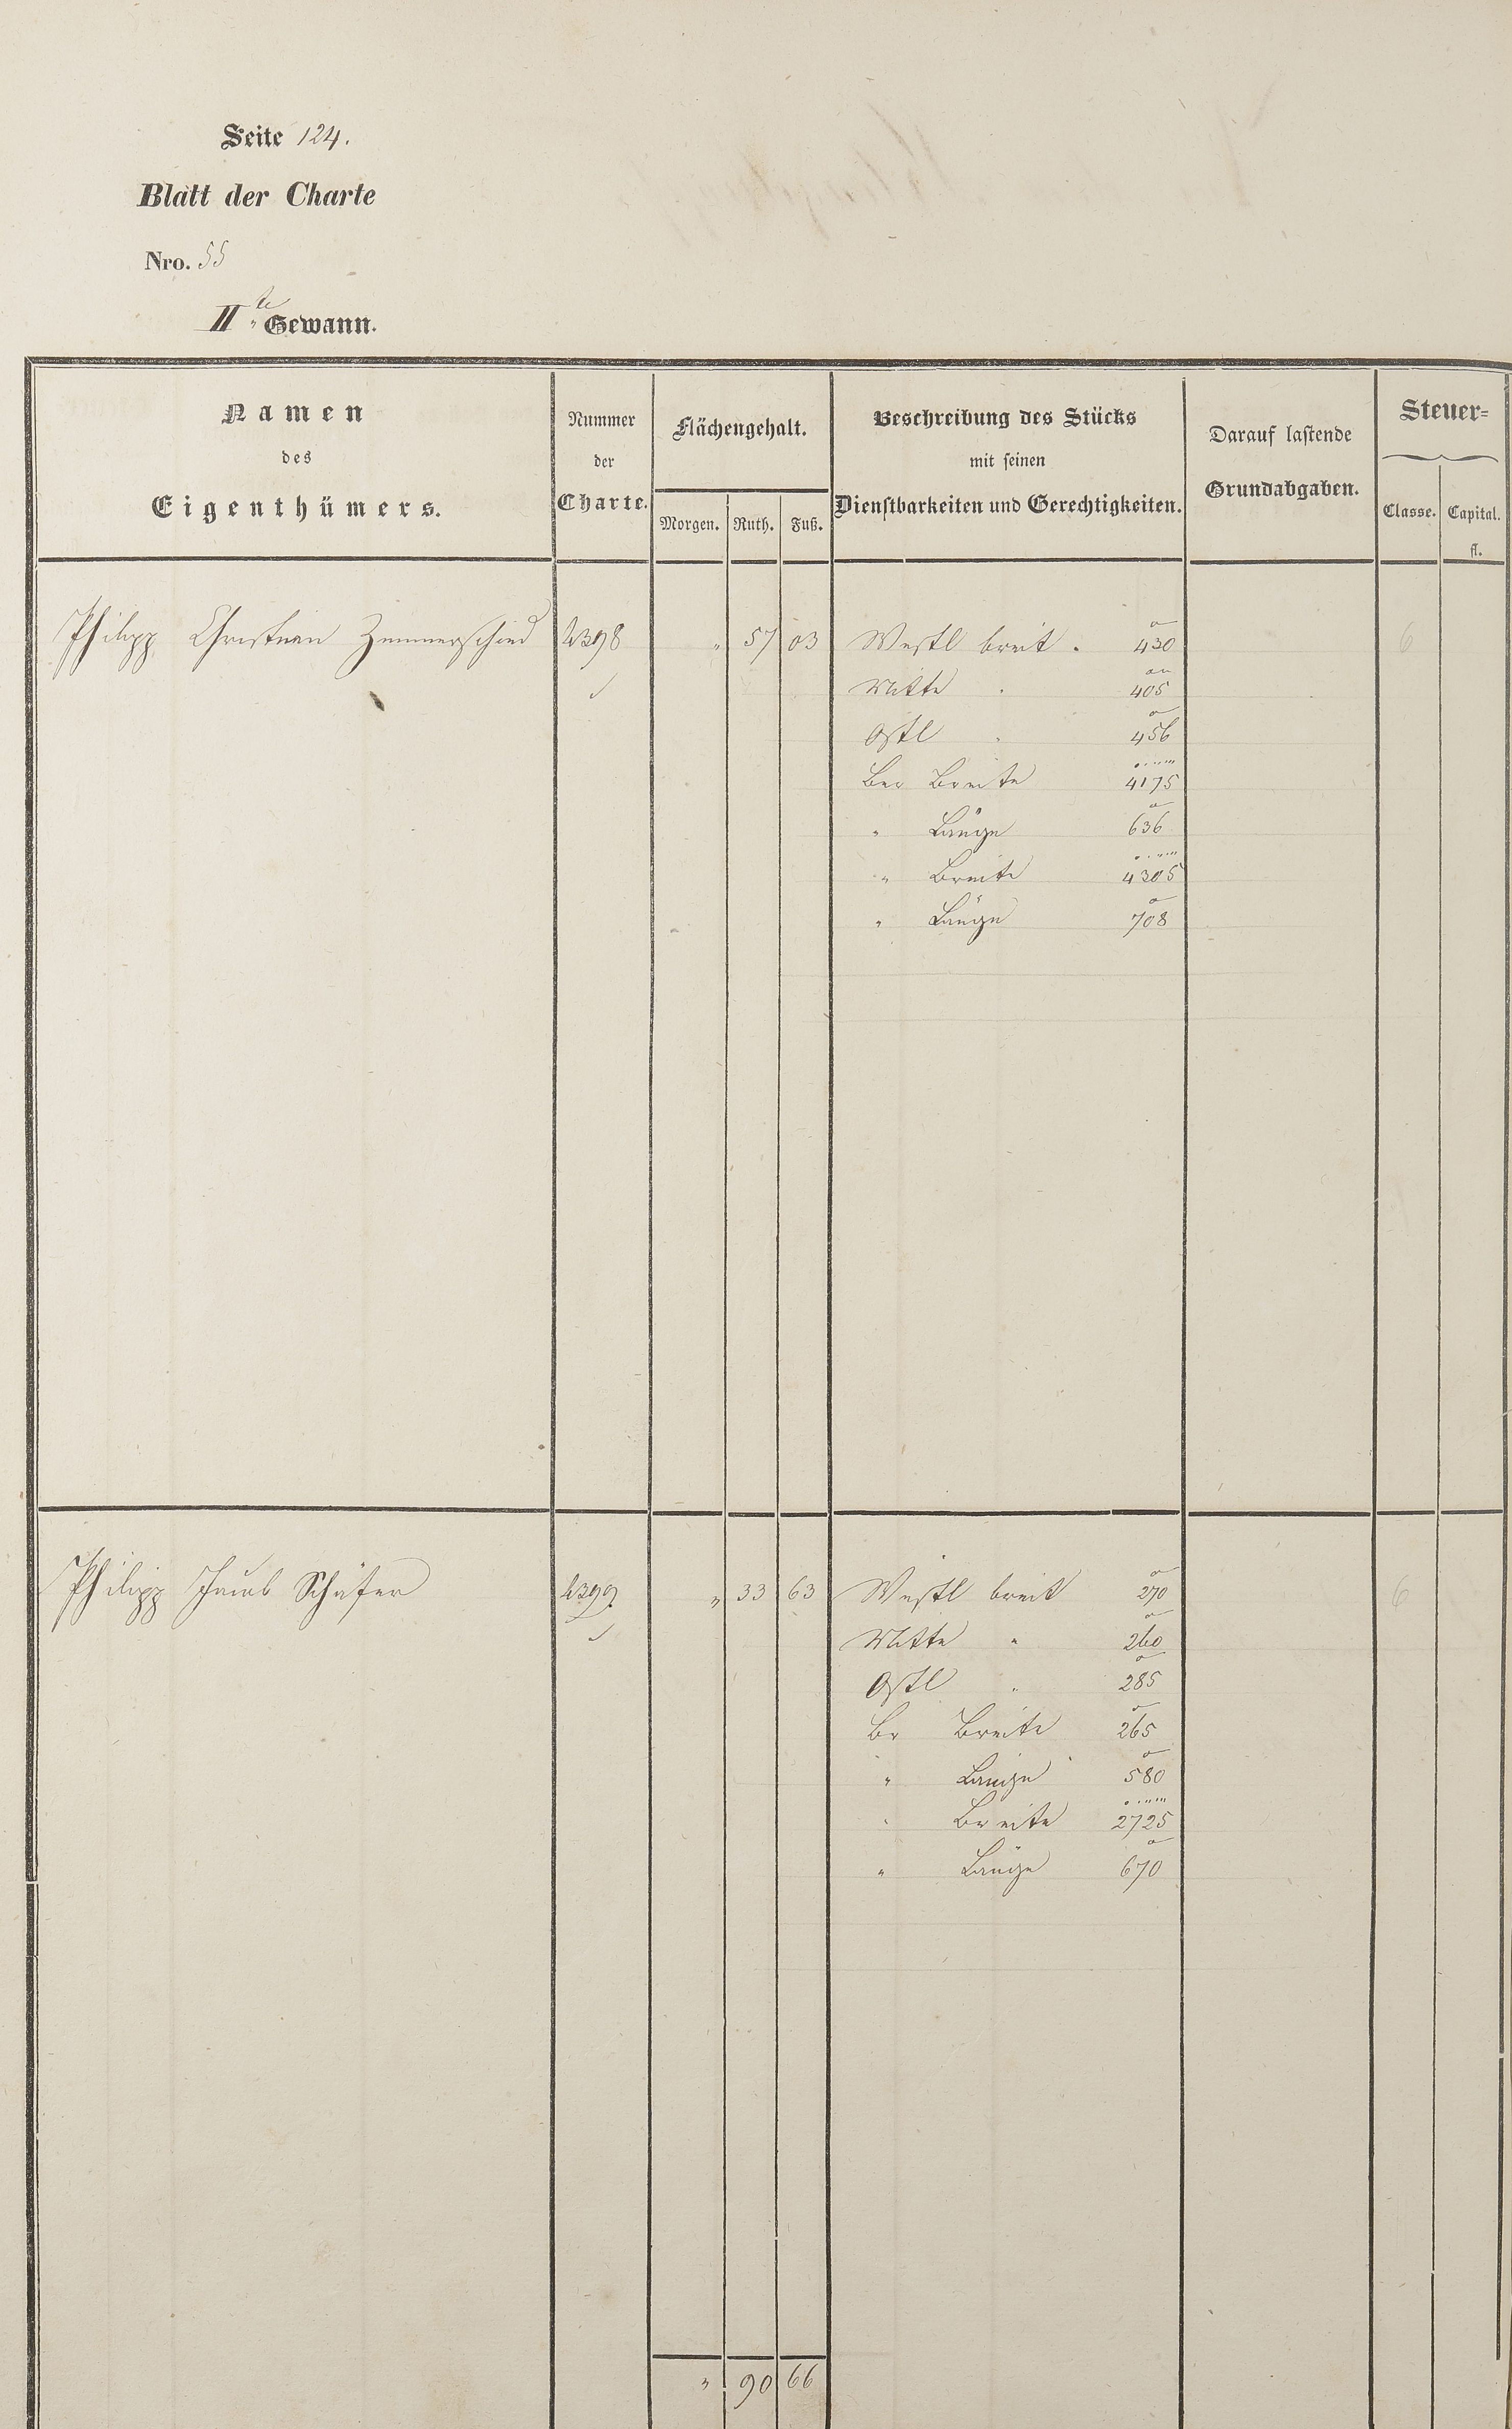 Seite 124.
Blatt der Charte
Nro. 55
IIte Gewann.
Namen
des
Eigenthümers.
Nummer
der
Charte.
Flächengehalt.
Morgen. Ruth. Fuß.
Beschreibung des Stücks
mit seinen
Dienstbarkeiten und Gerechtigkeiten.
Darauf lastende
Grundabgaben.
Steuer=
Classe. Capital.
fl.
Philipp Christian Zimmerschied 4398 " 57 03 Westl breit . 430 6
Mitte . 405
Ostl . 456
Ber Breite 4175
" Länge 636
" Breite 4305
" Länge 708
Philipp Jacob Schäfer 4399 " 33 63 Westl breit 270 6
Mitte " 260
Ostl " 285
Br Breite 265
" Länge 580
" Breite 2725
" Länge 670
" 90 66